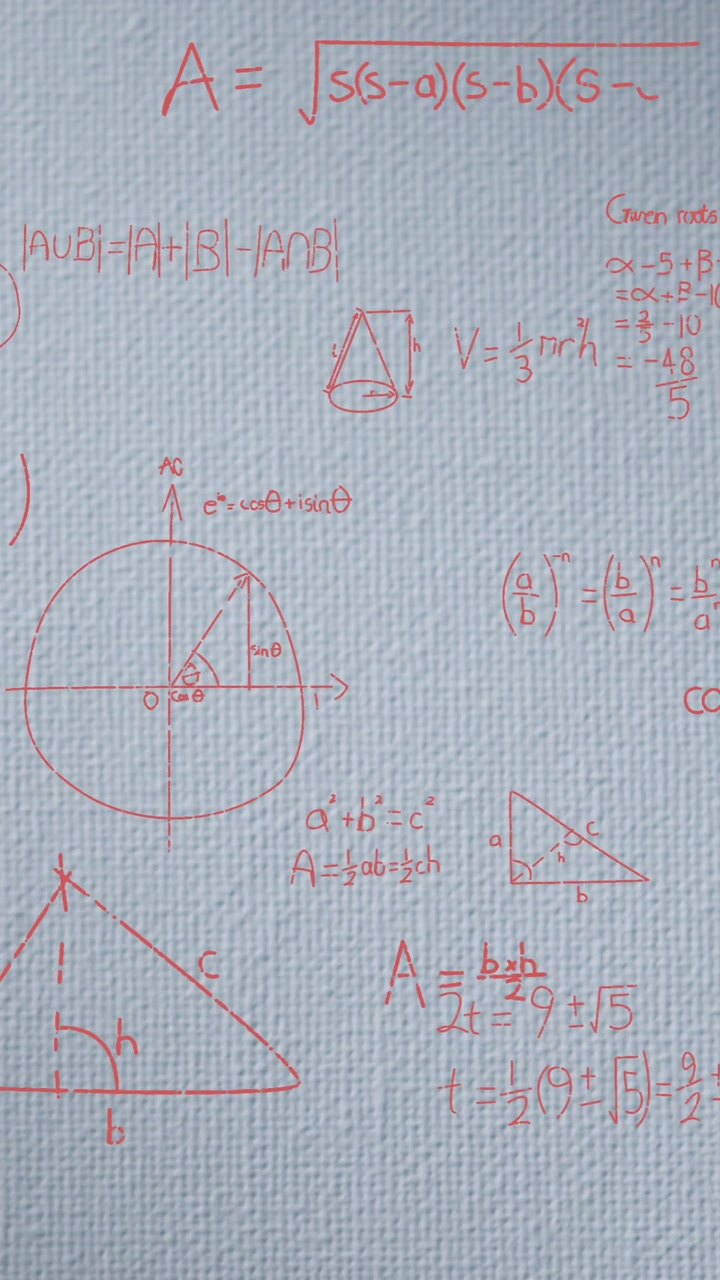 A = √s(s-a)(s-b)(s-
|A∪B|=|A|+|B|-|A∩B|
Given roots
α-5+β-
=α+β-10
=2/5-10
=-48/5
l h r
V=1/3πr²h
AC
e^iθ=cosθ+isinθ
(a/b)^-n=(b/a)^n=b^n/a^n
sinθ
θ
0 cosθ 1
co
a²+b²=c²
A=1/2ab=1/2ch
a c h b
c
h
b
A=b×h/2
2t=9±√5
t=1/2(9±√5)=9/2±